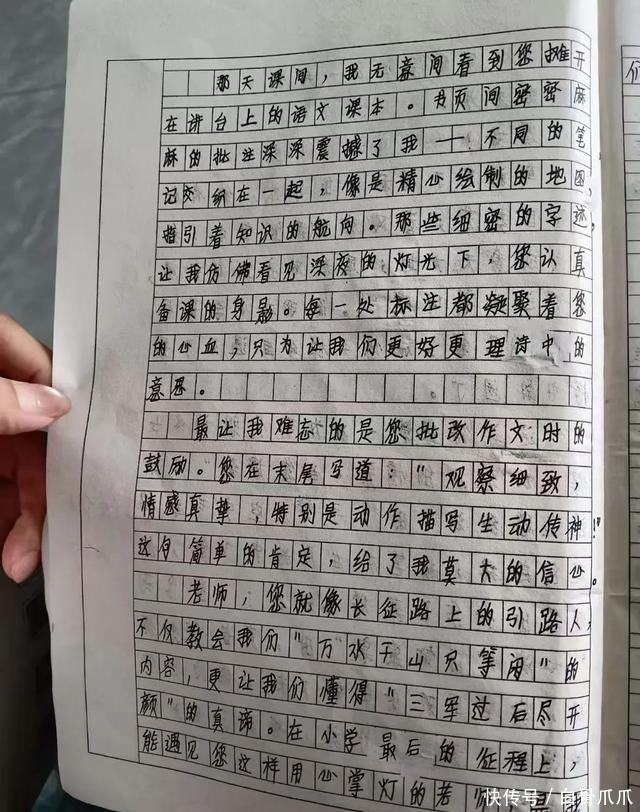 那天课间，我无意间看到您摊开
在讲台上的语文课本。书页间密密麻
麻的批注深深震撼了我——不同的笔
记交织在一起，像是精心绘制的地图，
指引着知识的航向。那些细密的字迹，
让我仿佛看见深夜的灯光下，您认真
备课的身影。每一处标注都凝聚着您
的心血，只为让我们更好更理诗中的
意思。
最让我难忘的是您批改作文时的
鼓励。您在末尾写道："观察细致，
情感真挚，特别是动作描写生动传神！"
这句简单的肯定，给了我莫大的信心。
老师，您就像长征路上的引路人，
不仅教会我们"万水千山只等闲"的
内容，更让我们懂得"三军过后尽开
颜"的真谛。在小学最后的征程上，
能遇见您这样用心掌灯的老
们
快传号／白骨爪爪